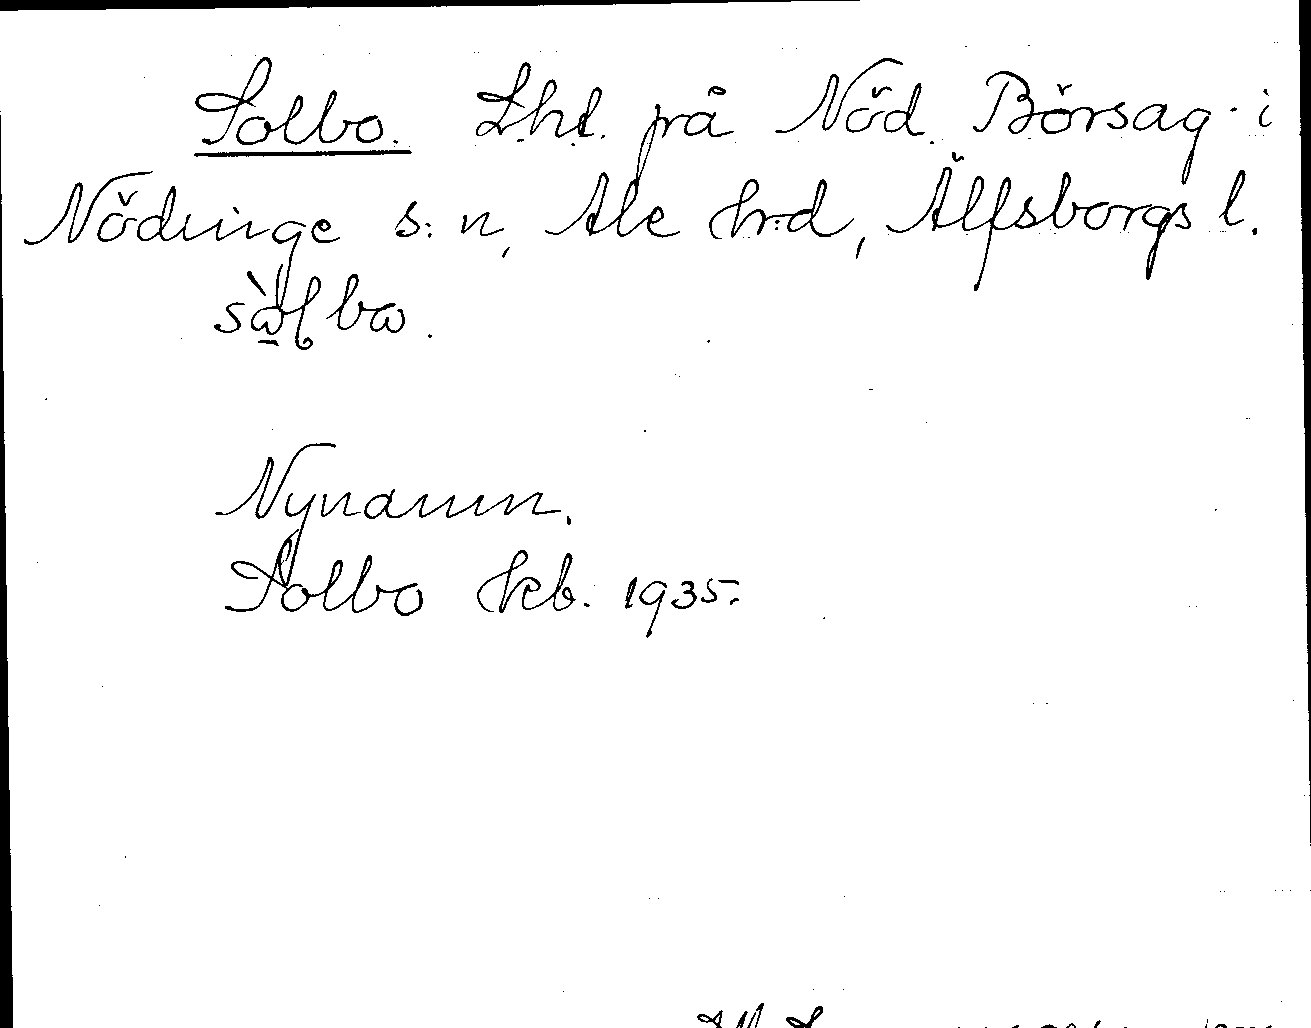 Solbo. Lht. på Nöd. Börsag. i
Nödinge s:n, Ale hrd, Älfsborgs l.
Nynamn.
Solbo heb. 1935.